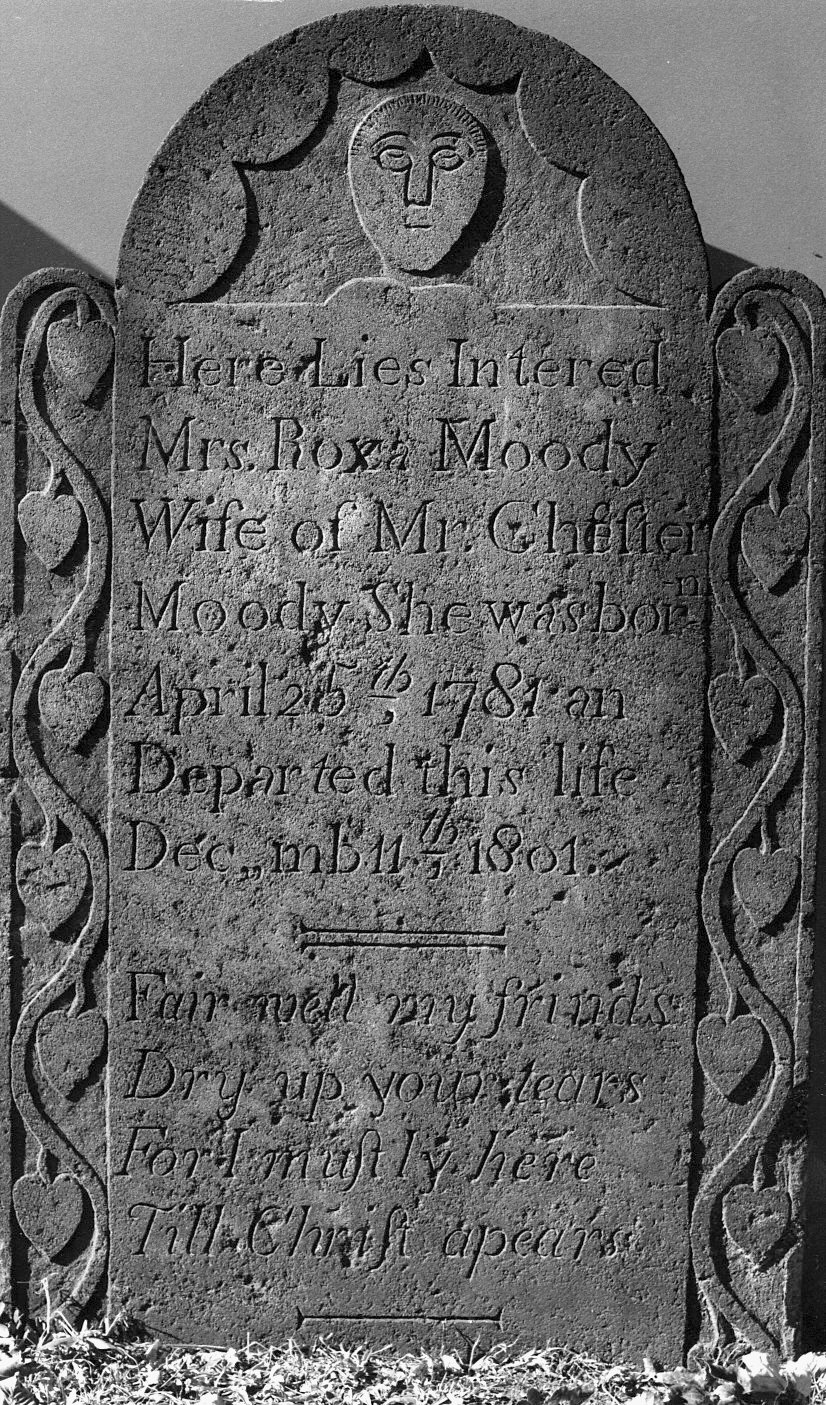 Here Lies Intered
Mrs. Roxa Moody
Wife of Mr. Cheſter
Moody She was bor-n
April 25th, 1781 an
Departed this life
Dec,,mb 11th, 1801.
Fair well my frinds
Dry up your tears
For I muſt ly here
Till Chriſt apears